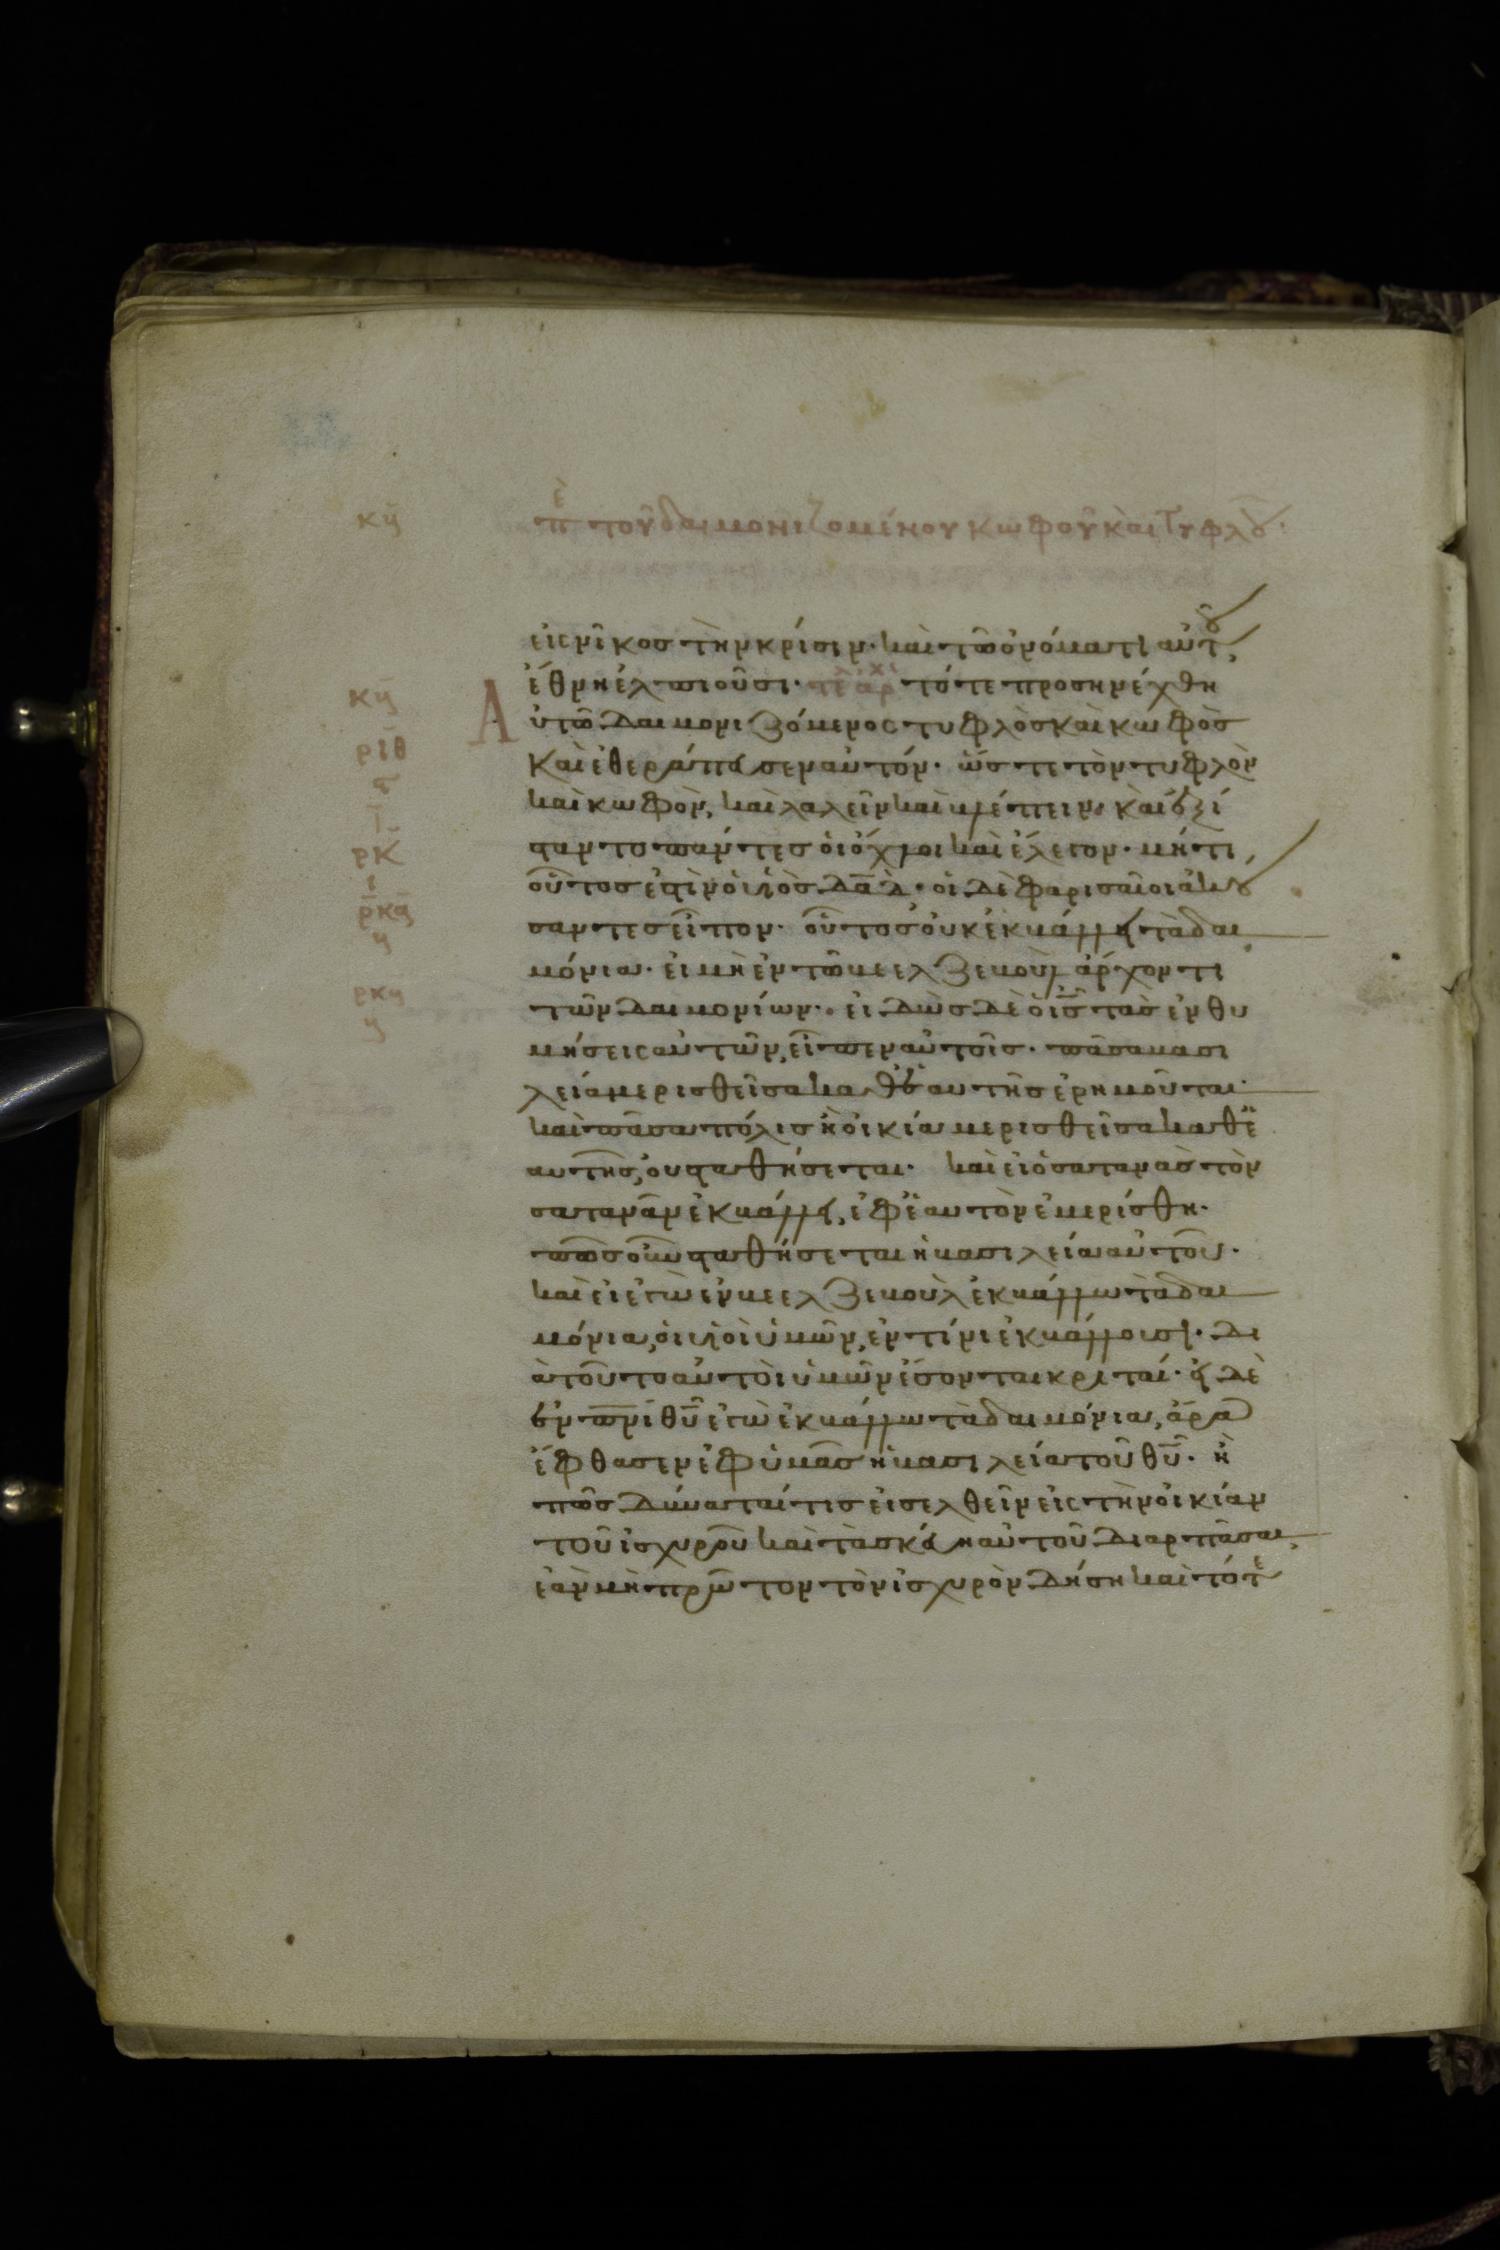 κγ
π̀ε τοῦ δαιμονιζομένου κωφοῦ κὰι τυφλοῦ·
εἰς νῖκος τὴν κρίσιν· καὶ τῶ ὀνόματι αὐτοῦ,
ἔθνη ἐλπιοῦσι· τελ ἀρχ τότε προσηνέχθη
κγ
Α
ὐτῶ δαιμονιζόμενος τυφλὸς καὶ κωφὸς
ριθ
καὶ ἐθεράπευσεν αὐτόν· ὥστε τὸν τυφλὸν
ϛ
καὶ κωφὸν, καὶ λαλεῖν καὶ βλέπειν· κὰι ἐξί
ι
σταντο πάντες ὁι ὄχλοι καὶ ἔλεγον· μήτι
ρκ
οὗτός ἐστιν ὁ υἱὸς δα̅δ̅· ὁι δὲ φαρισαῖοι ἀκού
ι
ρκα
σαντες εἶπον· οὗτος ὀυκ ἐκβάλλει τὰ δαι
γ
μόνια· ἐι μὴ ἐν τῶ βεελζεβοὺλ ἄρχοντι
ρκγ
τῶν δαιμονίων· ἐιδὼς δὲ ὁ ι̅ς̅ τὰς ἐνθυ
γ
μήσεις αὐτῶν, εἶπεν αὐτοῖς· πᾶσα βασι
λεία μερισθεῖσα καθ' ἑαυτῆς ἐρημοῦται·
καὶ πᾶσα πόλις ἢ ὀικία μερισθεῖσα καθ' ἑ
αυτῆς, ὀυ σταθήσεται· καὶ ἐι ὁ σατανᾶς τὸν
σατανᾶν ἐκβάλλει, ἐφ' ἑαυτὸν ἐμερίσθη·
πῶς οὖν σταθήσεται ἡ βασιλεία αὐτοῦ·
καὶ ἐι ἐγὼ ἐν βεελζεβοὺλ ἐκβάλλω τὰ δαι
μόνια, ὁι υἱοὶ ὑμῶν, ἐν τίνι ἐκβάλλουσι· δι
ὰ τοῦτο αὐτοὶ ὑμῶν ἔσονται κριταί· ἐι δὲ
ἐν π̅ν̅ι̅ θ̅υ̅ ἐγὼ ἐκβάλλω τὰ δαιμόνια, ἄρα
ἔφθασεν ἐφ' ὑμᾶς ἡ βασιλεία τοῦ θ̅υ̅· ἢ
πῶς δύναταί τις ἐισελθεῖν εἰς τὴν ὀικίαν
τοῦ ἰσχυροῦ καὶ τὰ σκεύη αὐτοῦ διαρπᾶσαι,
ἐὰν μὴ πρῶτον τὸν ἰσχυρὸν δήση καὶ τότε